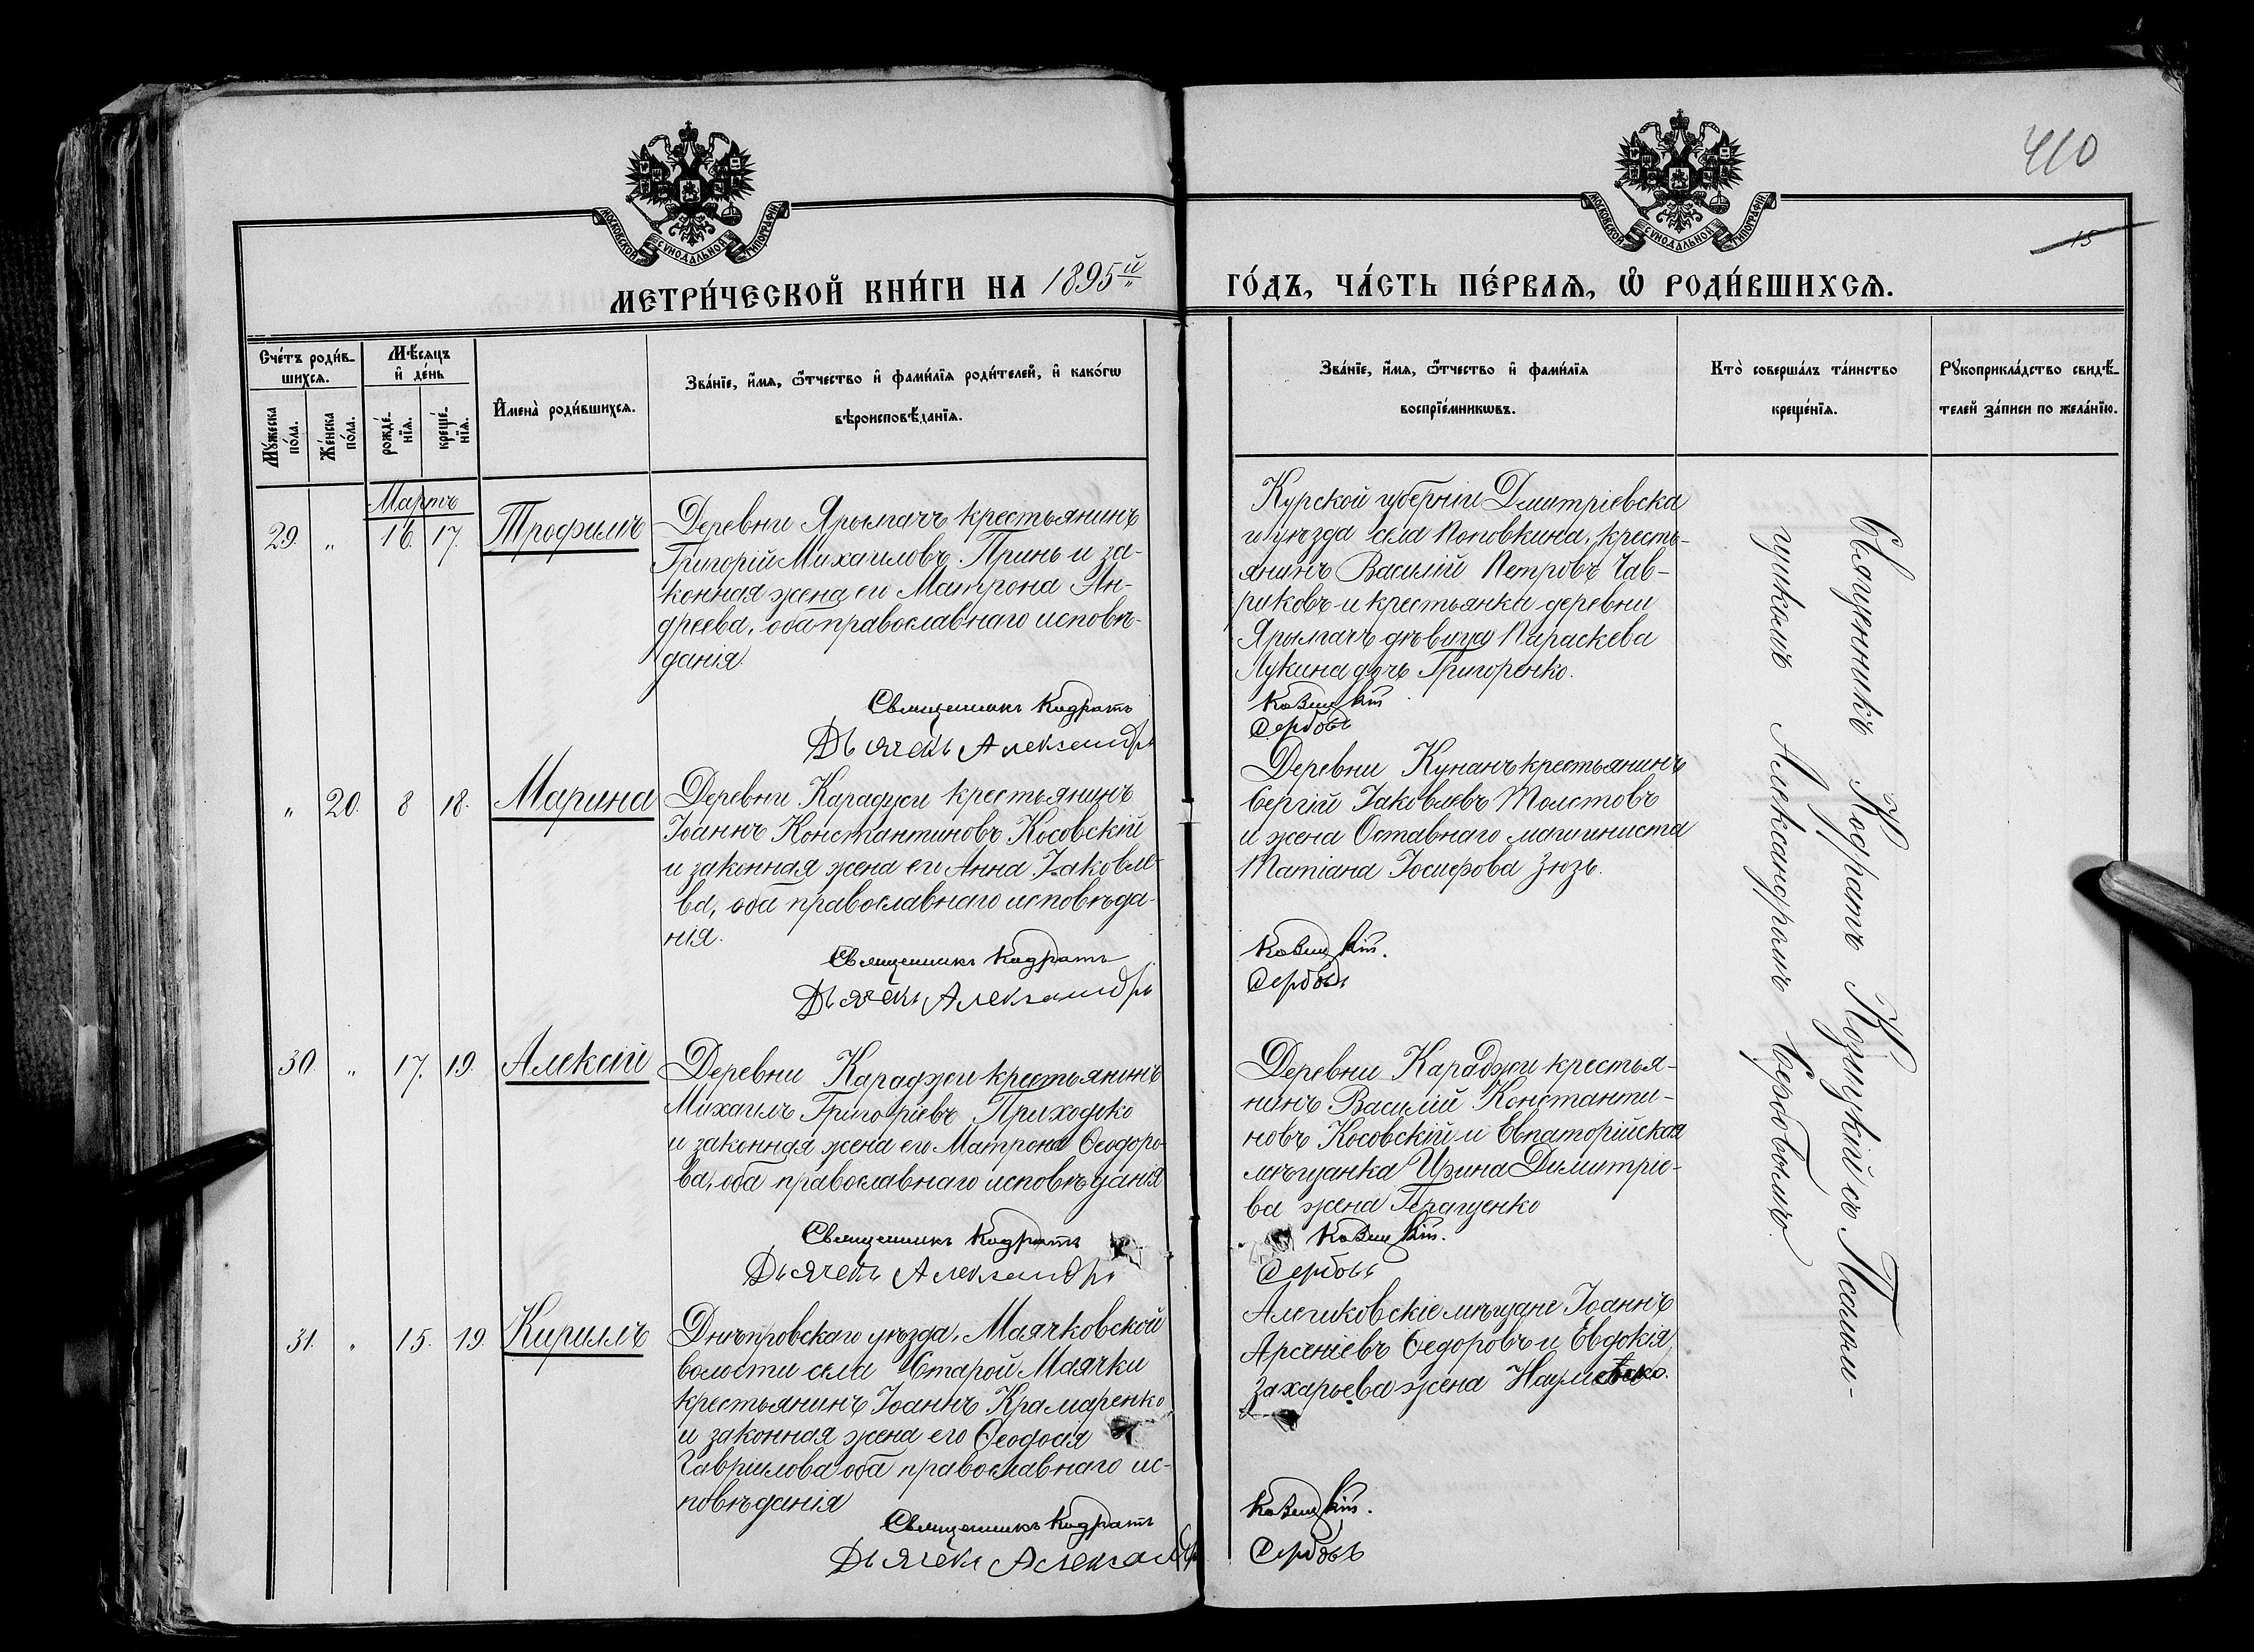 410
15
МОСКОВСКОЙ СѴНОДАЛЬНОЙ ТИПОГРАФІИ.
МОСКОВСКОЙ СѴНОДАЛЬНОЙ ТИПОГРАФІИ.
МЕТРИ́ЧЕСКОЙ КНИ́ГИ НА 1895й
ГО́ДЪ, ЧА́СТЬ ПЕ́РВАѦ, Ѽ РОДИ́ВШИХСѦ.
Сче́тъ роди́в-
шихсѧ.
Мѣ́сѧцъ
и҆ де́нь
Мꙋ́жеска
по́ла.
Же́нска
по́ла.
рожде́-
нїѧ.
креще́-
нїѧ.
И҆мена̀ роди́вшихсѧ.
Зва́нїе, и҆́мѧ, ѻ҆́тчество и҆ фами́лїѧ роди́телей, и҆ како́гѡ
вѣроисповѣ́данїѧ.
Зва́нїе, и҆́мѧ, ѻ҆́тчество и҆ фами́лїѧ
воспрїе́мникѡвъ.
Кто̀ соверша́лъ та́инство
креще́нїѧ.
Рꙋкоприкла́дство свидѣ́-
телей за́писи по жела́нїю.
Мартъ
29. " 16. 17. Трофимъ
Деревни Ярылгачъ крестьянинъ
Григорій Михаиловъ Принь и за-
конная жена его Матрона Ан-
дреева, оба православнаго исповѣ-
данія.
Священникъ Кодратъ
Дьячекъ Александръ
Курской губерніи Дмитріевска
го уѣзда села Поповкина, кресть-
янинъ Василій Петровъ Гав-
риковъ и крестьянка деревни
Ярылгачъ дѣвица Параскева
Лукина дочь Григоренко.
Козицкій
Сербовъ
" 20. 8 18. Марина
Деревни Караджи крестьянинъ
Іоаннъ Константиновъ Косовскій
и законная жена его Анна Іаковле-
ва, оба православнаго исповѣда-
нія.
Священникъ Кодратъ
Дьячекъ Александръ
Деревни Кунанъ крестьянинъ
Сергій Іаковлевъ Толстовъ
и жена Оставнаго машиниста
Татіана Іосифова Зюзь.
Козицкій.
Сербовъ
30. " 17. 19. Алексій
Деревни Караджи крестьянинъ
Михаилъ Григоріевъ Приходько
и законная жена его Матрона Ѳеодоро-
ва, оба православнаго исповѣданія
Священникъ Кодратъ
Дьячекъ Александръ
Деревни Караджи крестья-
нинъ Василій Константи-
новъ Косовскій и Евпаторійская
мѣщанка Ирина Димитріе-
ва жена Геращенко
Козицкій.
Сербовъ
31. " 15. 19. Кириллъ
Днѣпровскаго уѣзда, Маячковской
волости села Старой Маячки
крестьянинъ Іоаннъ Крамаренко
и законная жена его Ѳеодосія
Гаврилова оба православнаго ис-
повѣданія
Священникъ Кодратъ
Дьячекъ Александръ
Алешковскіе мѣщане Іоаннъ
Арсеніевъ Ѳедоровъ и Евдокія
Захарьева жена
Козицкій.
Сербовъ
Священникъ Кодратъ Козицкій съ Псалом-
щикомъ Александромъ Сербовымъ.